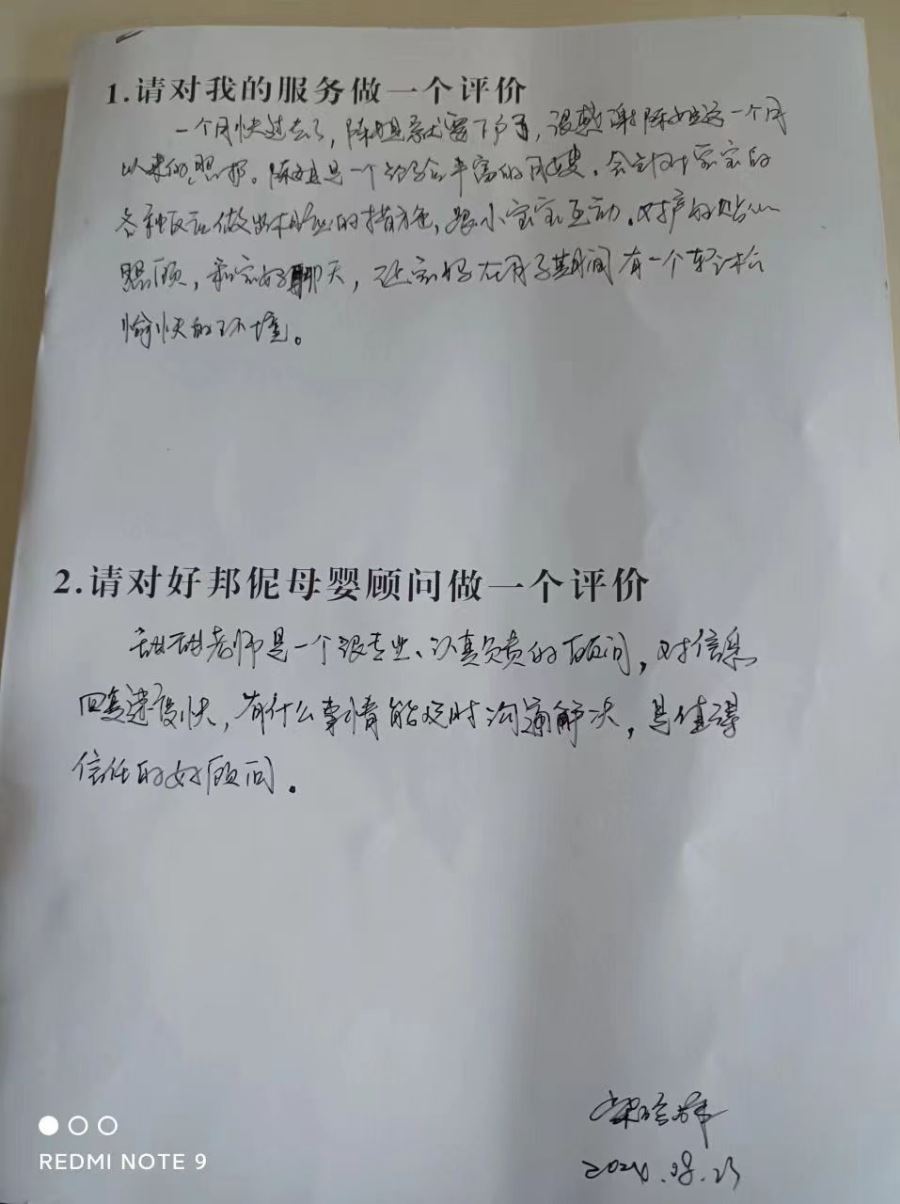 1.请对我的服务做一个评价
一个月快过去了,陈姐就要下户了,很感谢陈姐这一个月
以来的照顾。陈姐是一个经验丰富的月嫂,会针对宝宝的
各种反应做出相应的措施,跟小宝宝互动。对产妇贴心
照顾,和宝妈聊天,让宝妈在月子期间有一个轻松
愉快的环境。
2.请对好邦伲母婴顾问做一个评价
甜甜老师是一个很专业、认真负责的顾问,对信息
回复速度快,有什么事情能及时沟通解决,是值得
信任的好顾问.
2024.08.23
REDMI NOTE 9